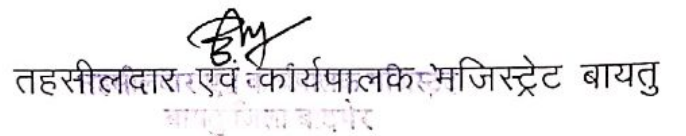 तहसीलदार एवं कार्यपालक मजिस्ट्रेट बायतु